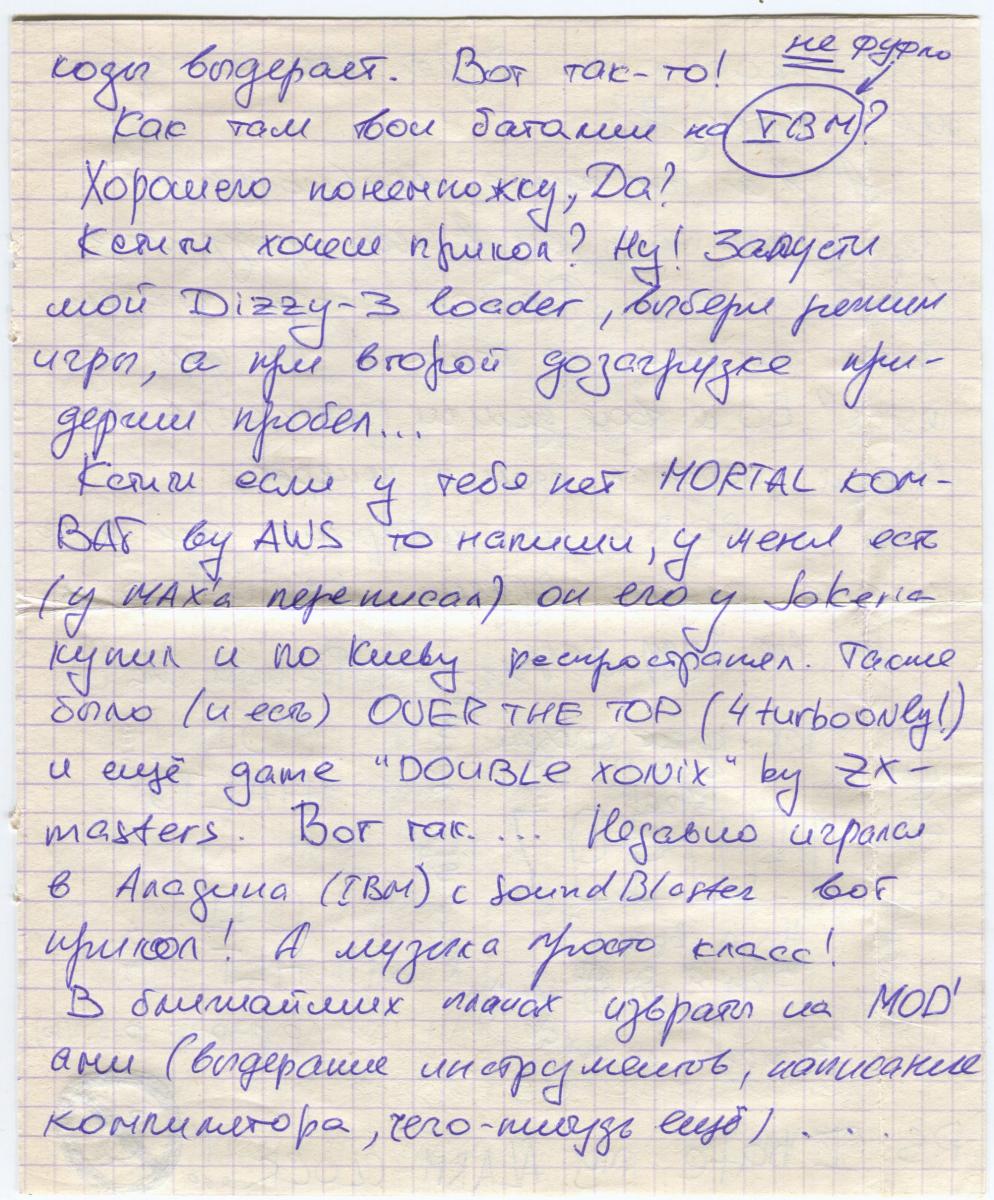 не фуфло
коды выдерает. Вот так-то!
Как там твои баталии на IBM?
Хорошего понемножку, Да?
Кстати хочеш прикол? Ну! Запусти
мой Dizzy-3 loader, выбери режим
игры, а при второй дозагрузке при-
держи пробел...
Кстати если у тебя нет MORTAL KOM-
BAT by AWS то напиши, у меня есть
(у MAX'а переписал) он его у Jokerа
купил и по Киеву распространял. Также
было (и есть) OVER THE TOP (4 turbo only!)
и ещё game "DOUBLE XONIX" by ZX-
masters. Вот так.... Недавно игрался
в Аладина (IBM) с SoundBlaster вот
прикол! А музыка просто класс!
В ближайших планах извраты на MOD'
ами (выдерание инструментов, написание
компилятора, чего-нибудь ещё) ....